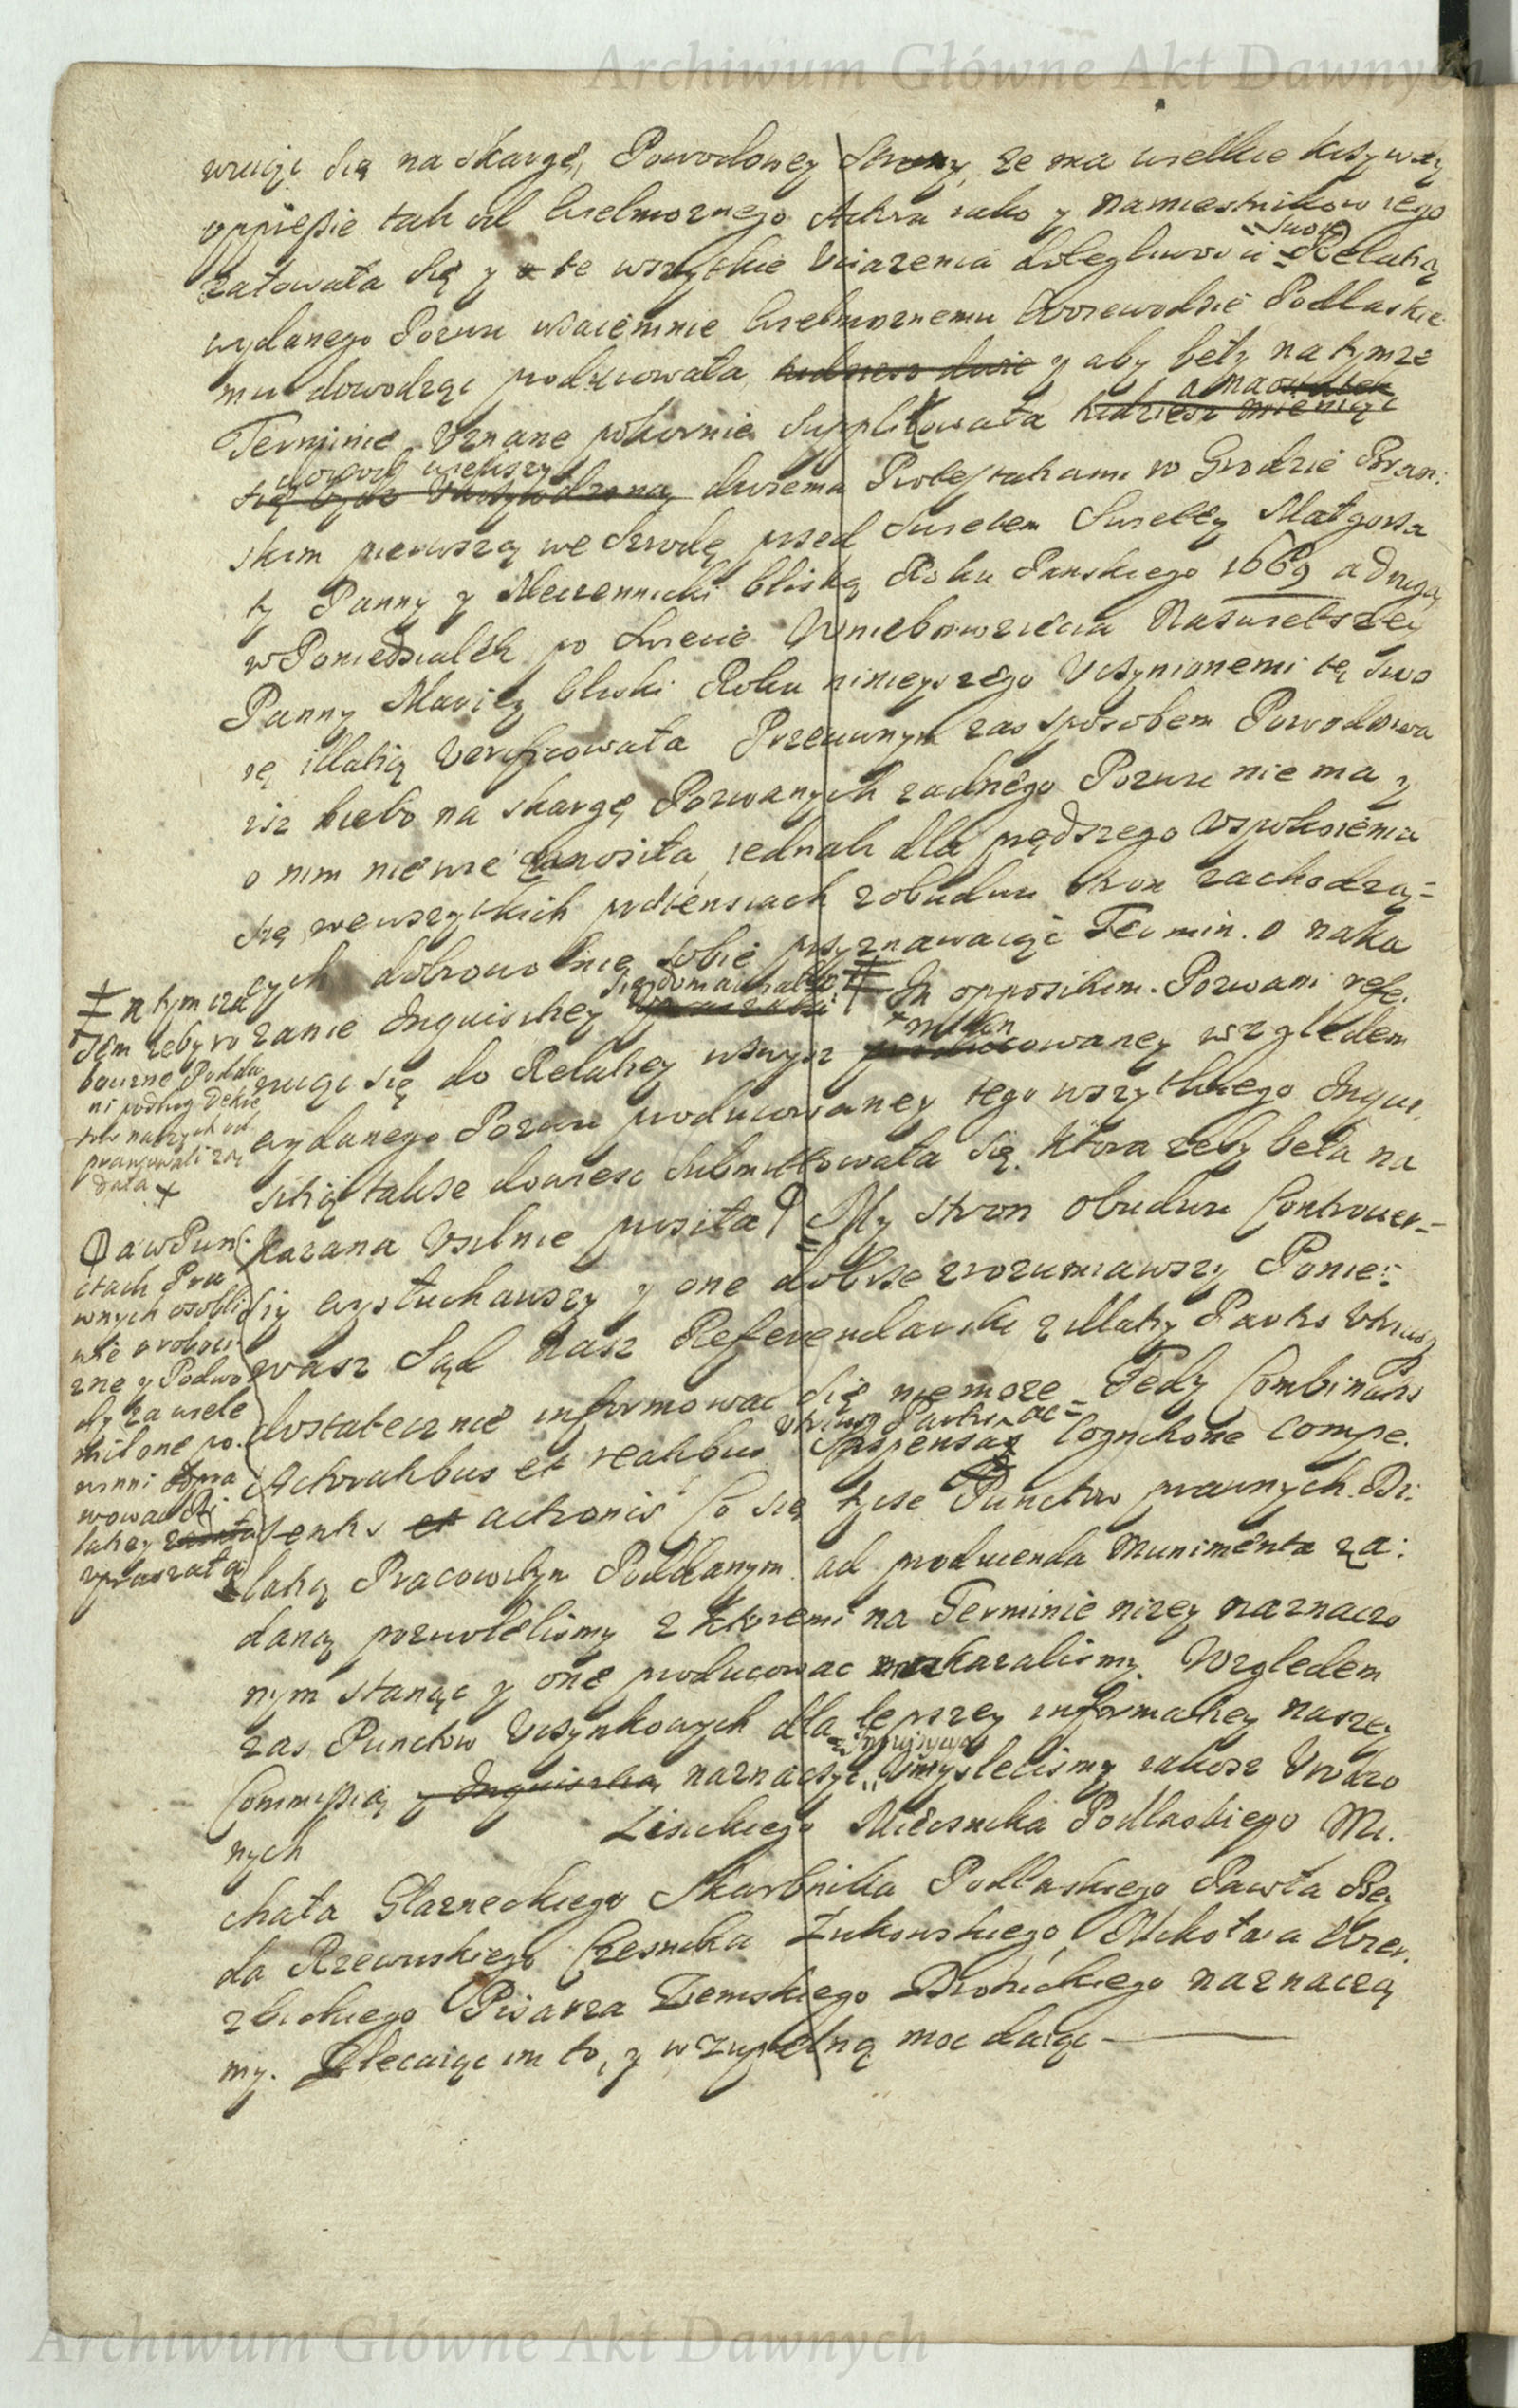 Archiwum Główne Akt Dawnych
wuiąc się na skargę Powodowey Strony, że ma wielkie krzywdy
oppressie tak od Wielmoznego Aktora iako y namiestnikow iego
załowała się y te wszytkie Uciązenia dolegliwosci swoie Relatią
wydanego Pozwu wzaiemnie Wielmoznemu Woiewodzie Podlaskie
mu dowodząc producowała, y aby beły na tymze
Terminie Uznane pokornie Supplikowała a na
dowod wiekszy dwiema Protestatiami w Grodzie Bran:
skim pierwszą we Srodę przed Swietem Swietey Małgorza
ty Panny y Męczennicki bliską Roku Panskiego 1669 a drugą
w Poniedziałek po Swięcie Wniebowzięcia Naswietszey
Panny Mariey bliski Roku ninieyszego Uczynionemi tę swo
ię illatią Verificowała Przeciwnym zas sposobem Powodowa
isz lubo na skargę Pozwanych zadnego Pozwu nie ma y
o nim nie wie wnosiła, iednak dla prędszego Uspokoienia
się we wszytkich praetensiach z obudwu stron zachodzą=
cych dobrowolnie sobie przyznawaiąc Termin. o naka
zanie Inquisitiey się domawiała In oppositum. Pozwani refe:
ruiąc się do Relatiey wzwysz mianowaney względem
wydanego Pozwu producowaney tego wszytkiego Inqui
sitią takze dowiesc submittowała się. Ktora zeby beła na
kazana Usilnie prosiła My stron obudwu Controuer=
siy wysłuchawszy y one dobrze zrozumiawszy Ponie=
wasz Sąd nasz Referendarski z illaty Partis Utriusq
dostatecznie informowac się nie moze Tedy Combinatis
Actoratibus et reatibus Utriusq Partis ac= Suspensa Cognitione Compe.
tentis actionis Co się tycze Punctow prawnych. Di:
latią Pracowitym Poddanym ad producenda Munimenta za:
daną pozwolilismy z ktoremi na Terminie nizey naznaczo
nym stanąc y one producowac nakazalismy. Względem
zas Punctow Uczynkowych dla lepszey informatiey naszey
Commissią y Inquisitią naznaczyc Umyslelismy iakosz Urodzo
nych Lisickiego Miecznika Podlaskiego Mi.
chała Skarbnika Podlaskiego Pawła
da Rzewuskiego Czesnika Zukowskiego, Mikołaia
Pisarza Ziemskiego Drohickiego naznaczą
my. Zlecaiąc im to, y w zupełną moc daiąc
ǂ a tymcza
sem zeby ro
bocizne Podda
ni podług Dekre
tow naszych od
prawowali zą
dała
a w Pun
ctach Pra
wnych osobli
wie o roboci
zne y Podwo
dy za wiele
mil one po
winni
wowac Di
latiey
upraszała
Archiwum Główne Akt Dawnych